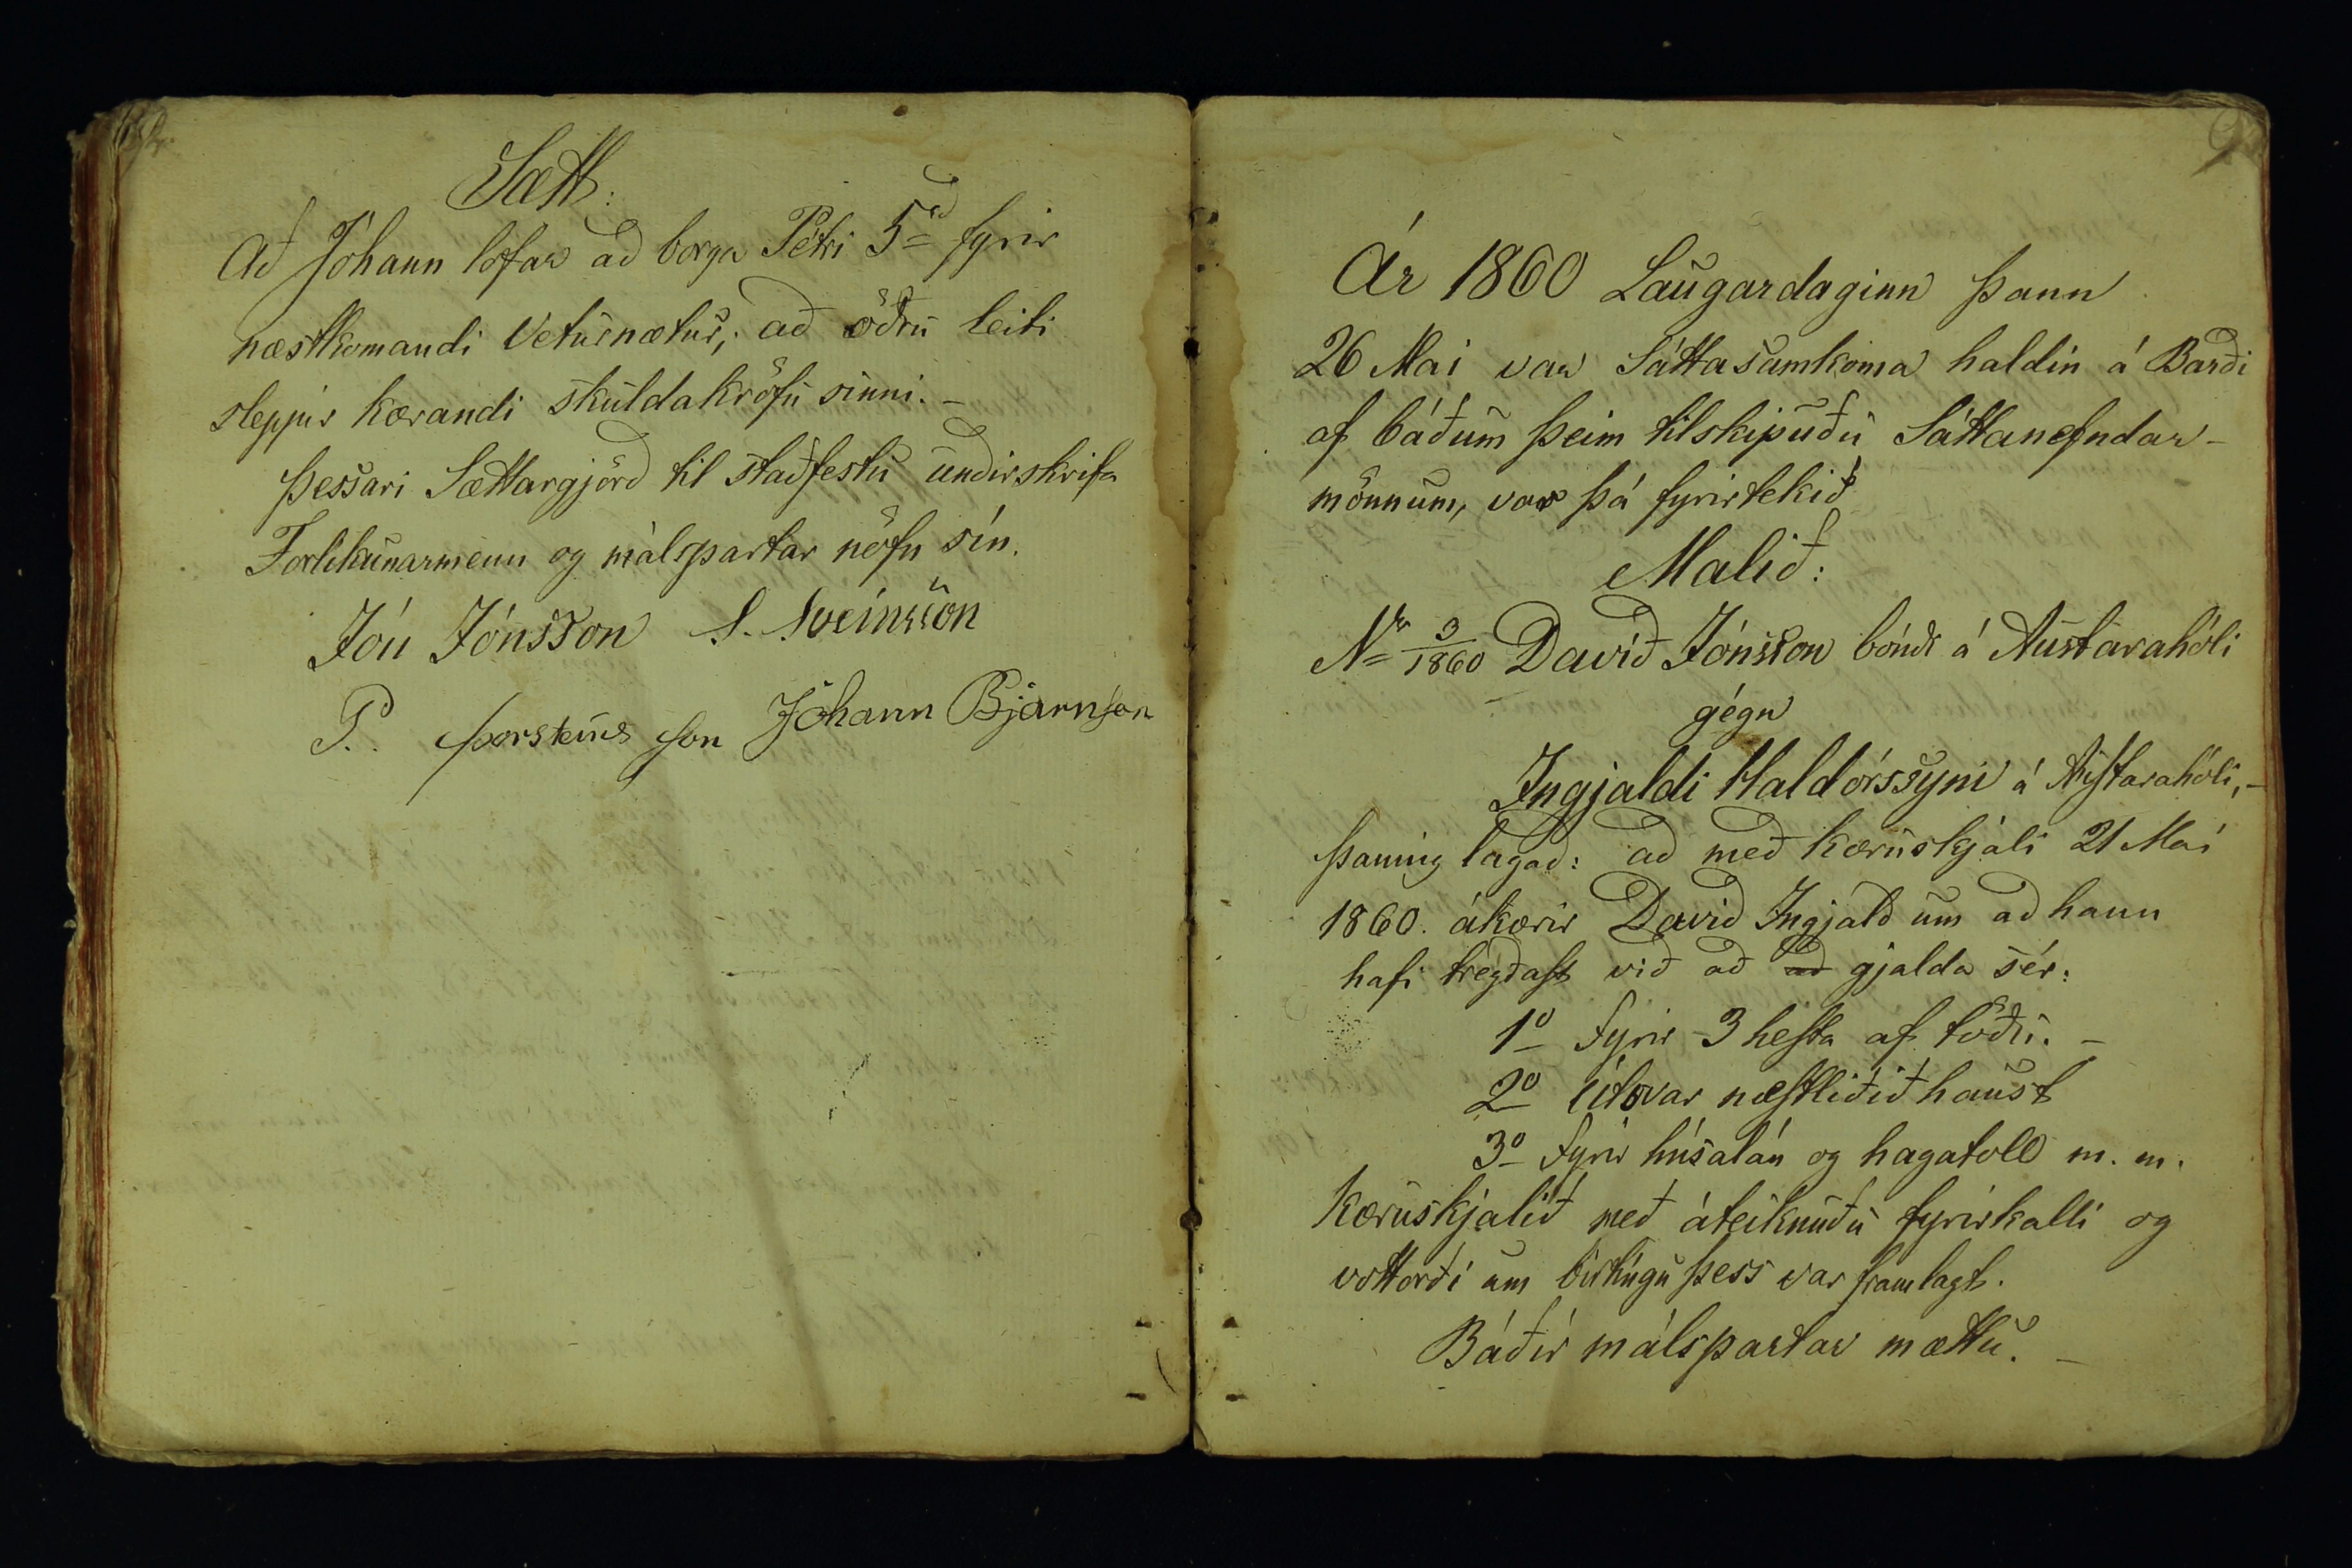 Sætt:
Að Jóhann lofar að borga Pétri 5rd fyrir
næstkomandi Veturnætur, að öðru leiti
sleppir kærandi skuldakröfu sinni. –
Þessari Sættargjörð til staðfestu undirskrifa
Forlikunarmenn og málspartar nöfn sín.
Jón Jónsson S. Sveinsson
P. Þorsteins son Jóhann Bjarnson
Ár 1860 Laugardaginn þann
26 Mai var Sáttasamkoma haldin á Barði
af báðum þeim tilskipuðu Sáttanefndar-
mönnum, var þá fyrirtekið
Malið:
Nr 3/1860 Davið Jónsson bóndi á Austarahóli
gégn
Ingjaldi Haldórssyni á Austarahóli, –
þannig lagað: að með kæruskjali 21 Mai
1860. ákærir Davið Ingjald um að hann
hafi trégðast við að að gjalda sér:
1o fyrir 3 hesta af töðu. –
2o næstliðið haust
3o fyrir húsalán og hagatoll m. m.
Kæruskjalið með áteiknuðu fyrirkalli og
vottorði um birtingu þess var framlagt.
Báðir málspartar mættu. –